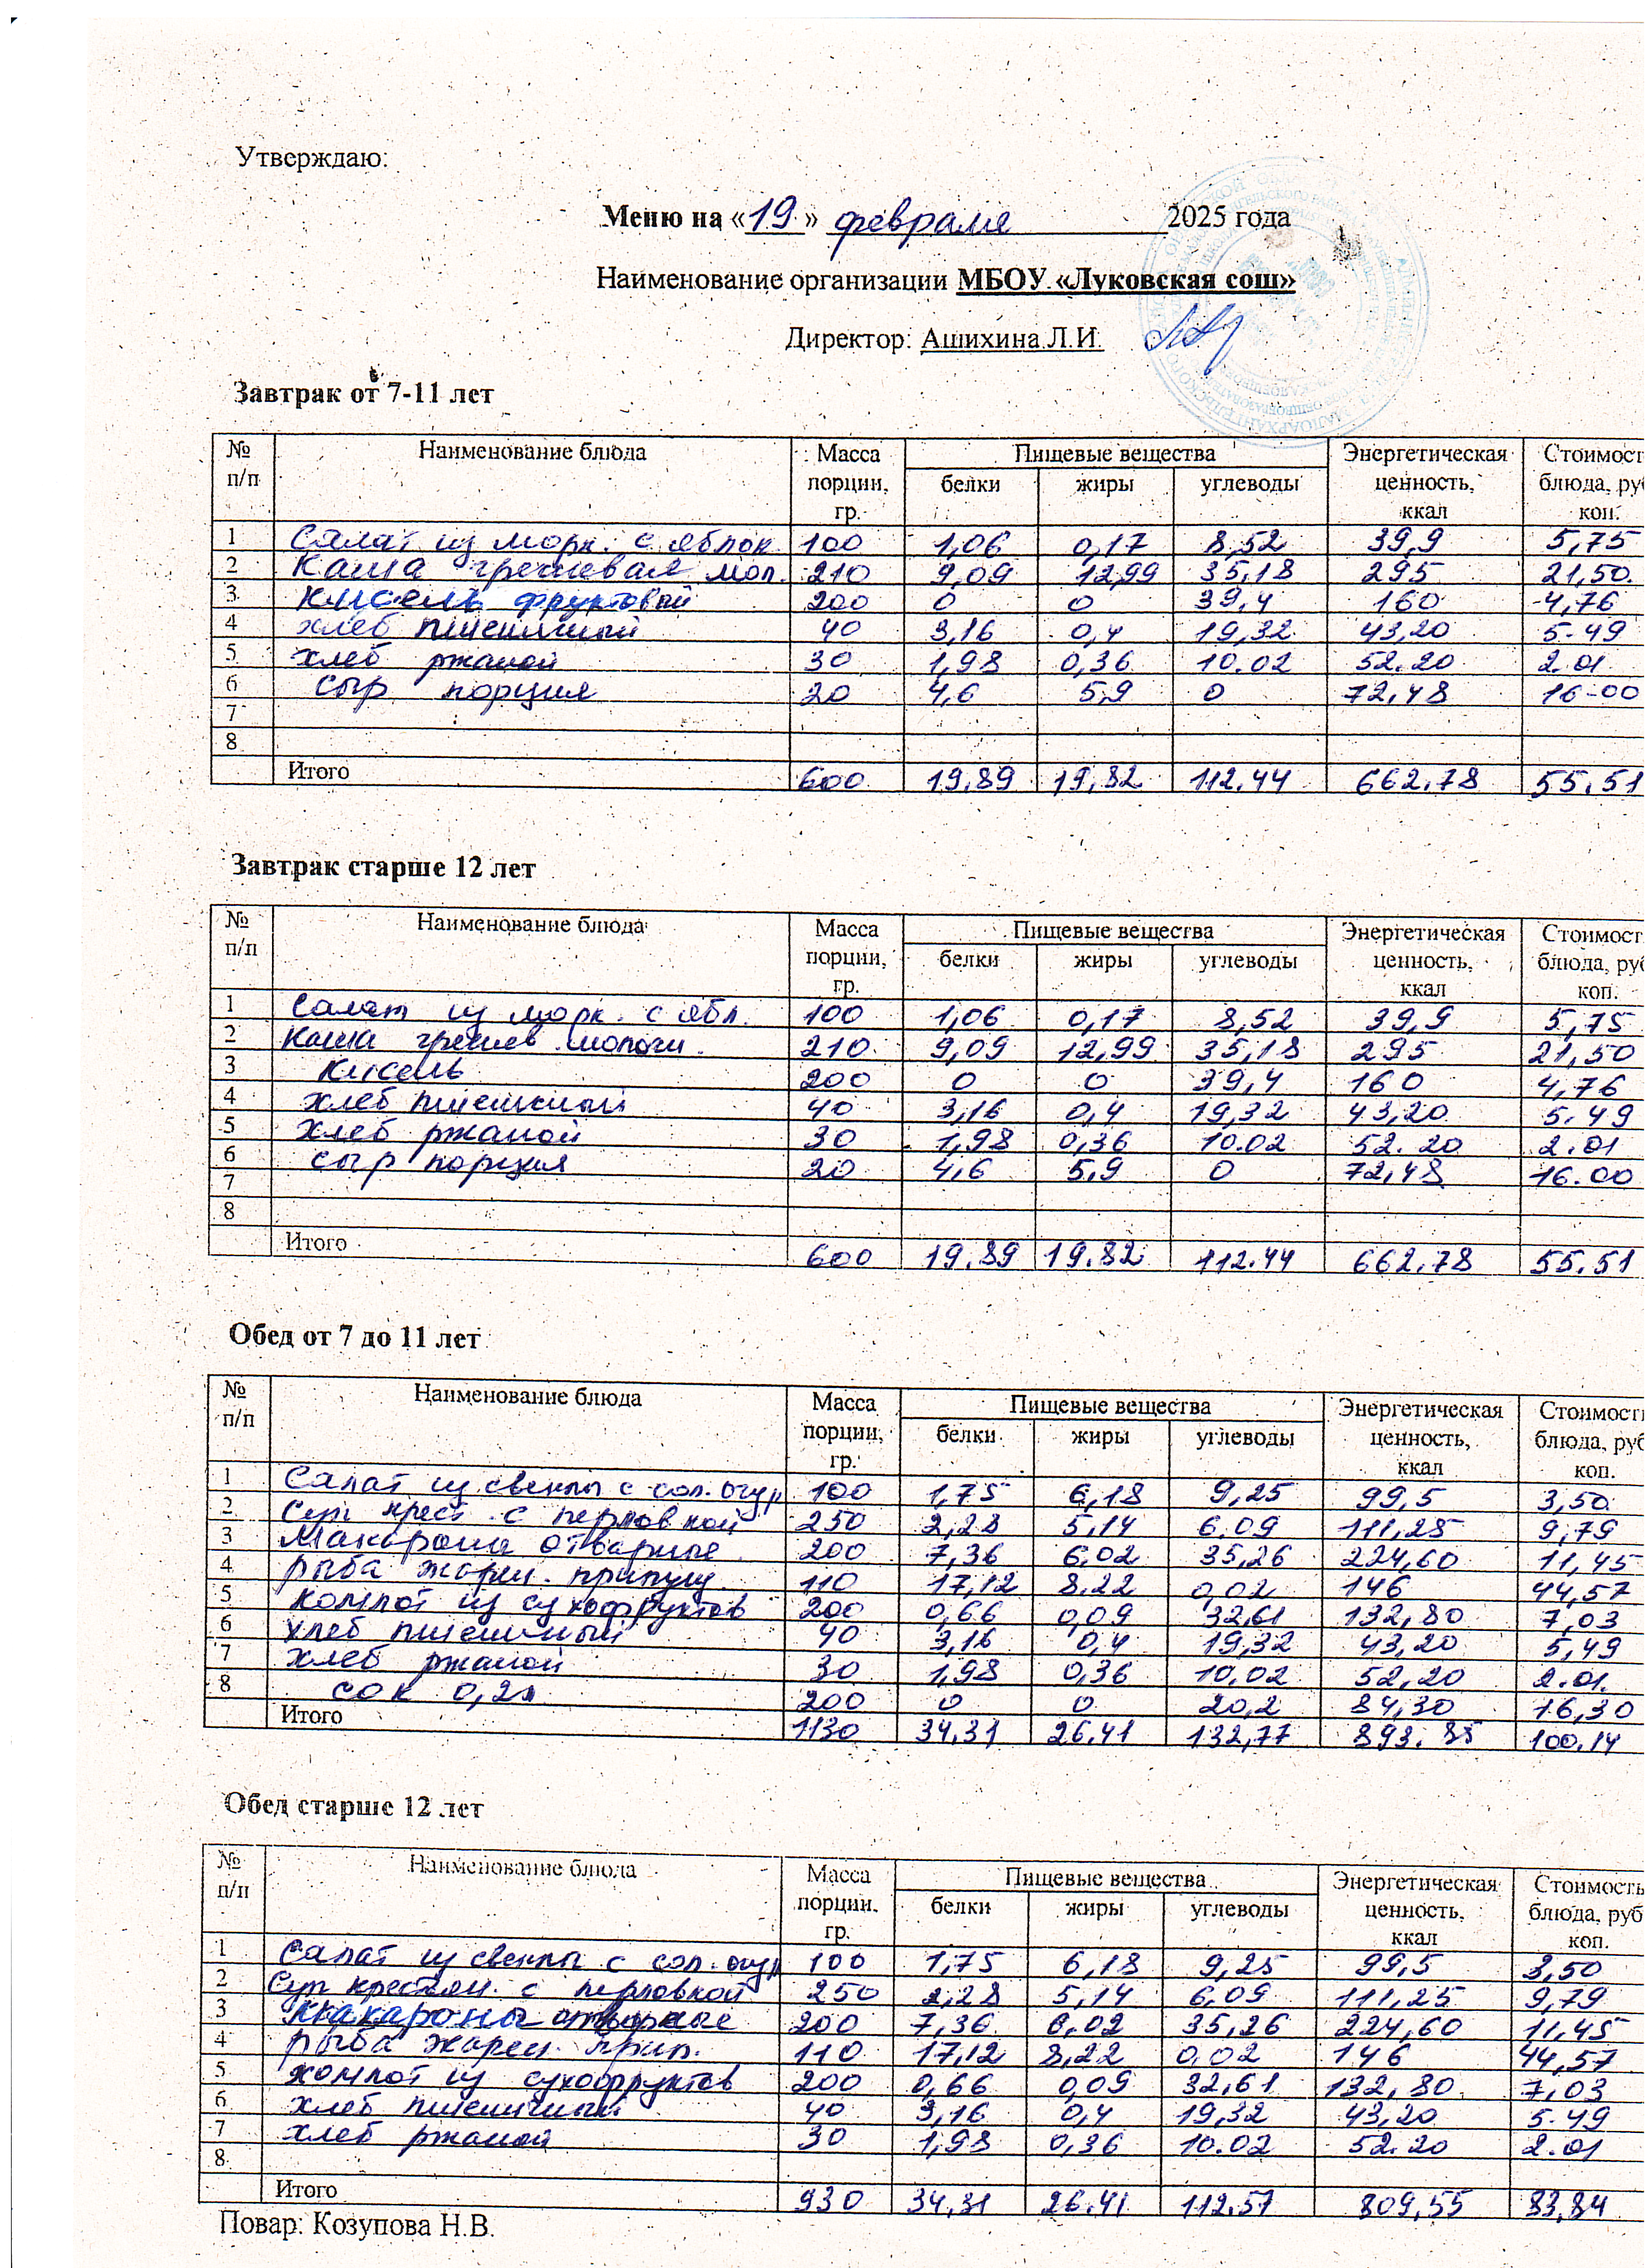 Утверждаю:
Меню на «19» февраля 2025 года
Наименование организации МБОУ «Луковская сош»
Директор: Ашихина Л.И.
Завтрак от 7-11 лет
№ п/п Наименование блюда Масса порции, гр. Пищевые вещества белки жиры углеводы Энергетическая ценность, ккал Стоимост блюда, ру коп.
1 Салат из морк. с яблок 100 1,06 0,17 8,52 39,9 5,75
2 Каша гречневая мол. 210 9,09 12,99 35,18 295 21,50
3 Кисель фруктовый 200 0 0 39,4 160 4,76
4 хлеб пшеничный 40 3,16 0,4 19,32 43,20 5.49
5 хлеб ржаной 30 1,98 0,36 10.02 52.20 2.01
6 сыр порция 20 4,6 5,9 0 72,48 16-00
7
8
Итого 600 19,89 19,82 112.44 662,78 55,51
Завтрак старше 12 лет
№ п/п Наименование блюда Масса порции, гр. Пищевые вещества белки жиры углеводы Энергетическая ценность, ккал Стоимост блюда, ру коп.
1 Салат из морк. с ябл. 100 1,06 0,17 8,52 39,9 5,75
2 Каша гречнев молочн. 210 9,09 12,99 35,18 295 21,50
3 Кисель 200 0 0 39,4 160 4,76
4 хлеб пшеничный 40 3,16 0,4 19,32 43,20 5.49
5 хлеб ржаной 30 1,98 0,36 10.02 52.20 2.01
6 сыр порция 20 4,6 5,9 0 72,48 16.00
7
8
Итого 600 19.89 19.82 112.44 662,78 55.51
Обед от 7 до 11 лет
№ п/п Наименование блюда Масса порции, гр. Пищевые вещества белки жиры углеводы Энергетическая ценность, ккал Стоимост блюда, руб коп.
1 Салат из свеклы с сол. огур 100 1,75 6,18 9,25 99,5 3,50
2 Суп крест. с перловкой 250 2,28 5,14 6.09 111,25 9,79
3 Макароны отварные 200 7,36 6,02 35,26 224,60 11,45
4 рыба жарен. припущ 110 17,12 8.22 0,02 146 44,57
5 компот из сухофруктов 200 0,66 0,09 32,61 132,80 7,03
6 хлеб пшеничный 40 3,16 0,4 19,32 43,20 5,49
7 хлеб ржаной 30 1,98 0,36 10,02 52,20 2.01.
8 сок 0,2л 200 0 0 20,2 84,30 16,30
Итого 1130 34,31 26.41 132,77 893.85 100.14
Обед старше 12 лет
№ п/п Наименование блюда Масса порции, гр. Пищевые вещества белки жиры углеводы Энергетическая ценность, ккал Стоимость блюда, руб коп.
1 Салат из свеклы с сол. огур 100 1,75 6,18 9,25 99,5 3,50
2 Суп крестьян. с перловкой 250 2,28 5,14 6,09 111,25 9,79
3 Макароны отварные 200 7,36 6,02 35,26 224,60 11,45
4 рыба жарен. прип. 110 17,12 8,22 0,02 146 44,57
5 компот из сухофруктов 200 0,66 0,09 32,61 132,80 7,03
6 хлеб пшеничный 40 3,16 0,4 19,32 43,20 5.49
7 хлеб ржаной 30 1,98 0,36 10.02 52.20 2.01
8
Итого 930 34,31 26.41 112.57 809,55 83,84
Повар: Козупова Н.В.